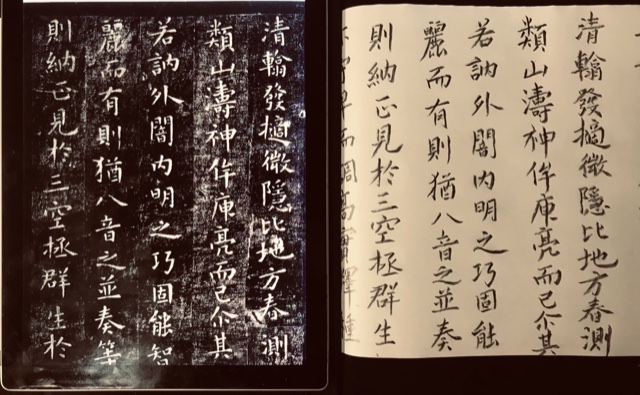 清翰發擿微隱比地方春測
類山濤神侔庾亮而已尒其
若訥外闇内明之巧固能智
麗而有則猶八音之並奏等
則納正見於三空拯群生於
清翰發擿微隱比地方春測
類山濤神侔庾亮而已尒其
若訥外闇内明之巧固能
麗而有則猶八音之並奏
則納正見於三空拯群生